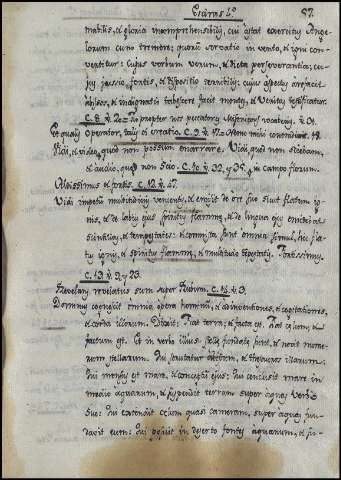 Esdras 4.º 87.
mabilis, et gloria incomprehensibilis, cui astat exercitus Ange-
lorum cum tremore; quorum servatio in vento, et igni con-
vertitur: Cujus verbum verum, et dicta perseverantia; cu-
jus jussio fortis, et dispositio terribilis; cujus aspectus arefacit
abyssos, et indignatio tabescere facit montes, et veritas testificatur.
C. 8.
Et qualis operator, talis et creatio. C. 9.
Vidi, et video, quod non possum enarrare. Vidi, quod non sciebam,
et audio, quod non scio. C. 10. 32, 35, in campo florum.
Altissimus et fortis. C. 12. 47.
Vidi impetu multitudinis venientis, et emisit de ore suo sicut flatum ig-
nis, et de labiis ejus spiritus flammae, et de lingua ejus emittebat
scintillas, et tempestates: et commixta sunt omnia simul, hic fla-
tus ignis, et spiritus flammae, et multitudo tempestatis. Fortissimus.
C. 13. 23.
Revelans revelatus sum super Rubum. C. 14. 3.
Dominus cognovit omnia opera hominis, et adinventiones, et cogitationes,
et corda illorum. Dixit: Fiat terra; et facta est. Fiat caelum, et
factum est. Et in verbo illius stellae fundatae sunt, et novit nume-
rum stellarum. Qui scrutatur abyssum, et thesauros illarum.
Qui mensus est mare, et conceptum ejus: Qui conclusit mare in
medio aquarum, et suspendit terram super aquas verbo
suo: Qui extendit caelum quasi cameram, super aquas fun-
davit eum: Qui posuit in deserto fontes aquarum, et su-